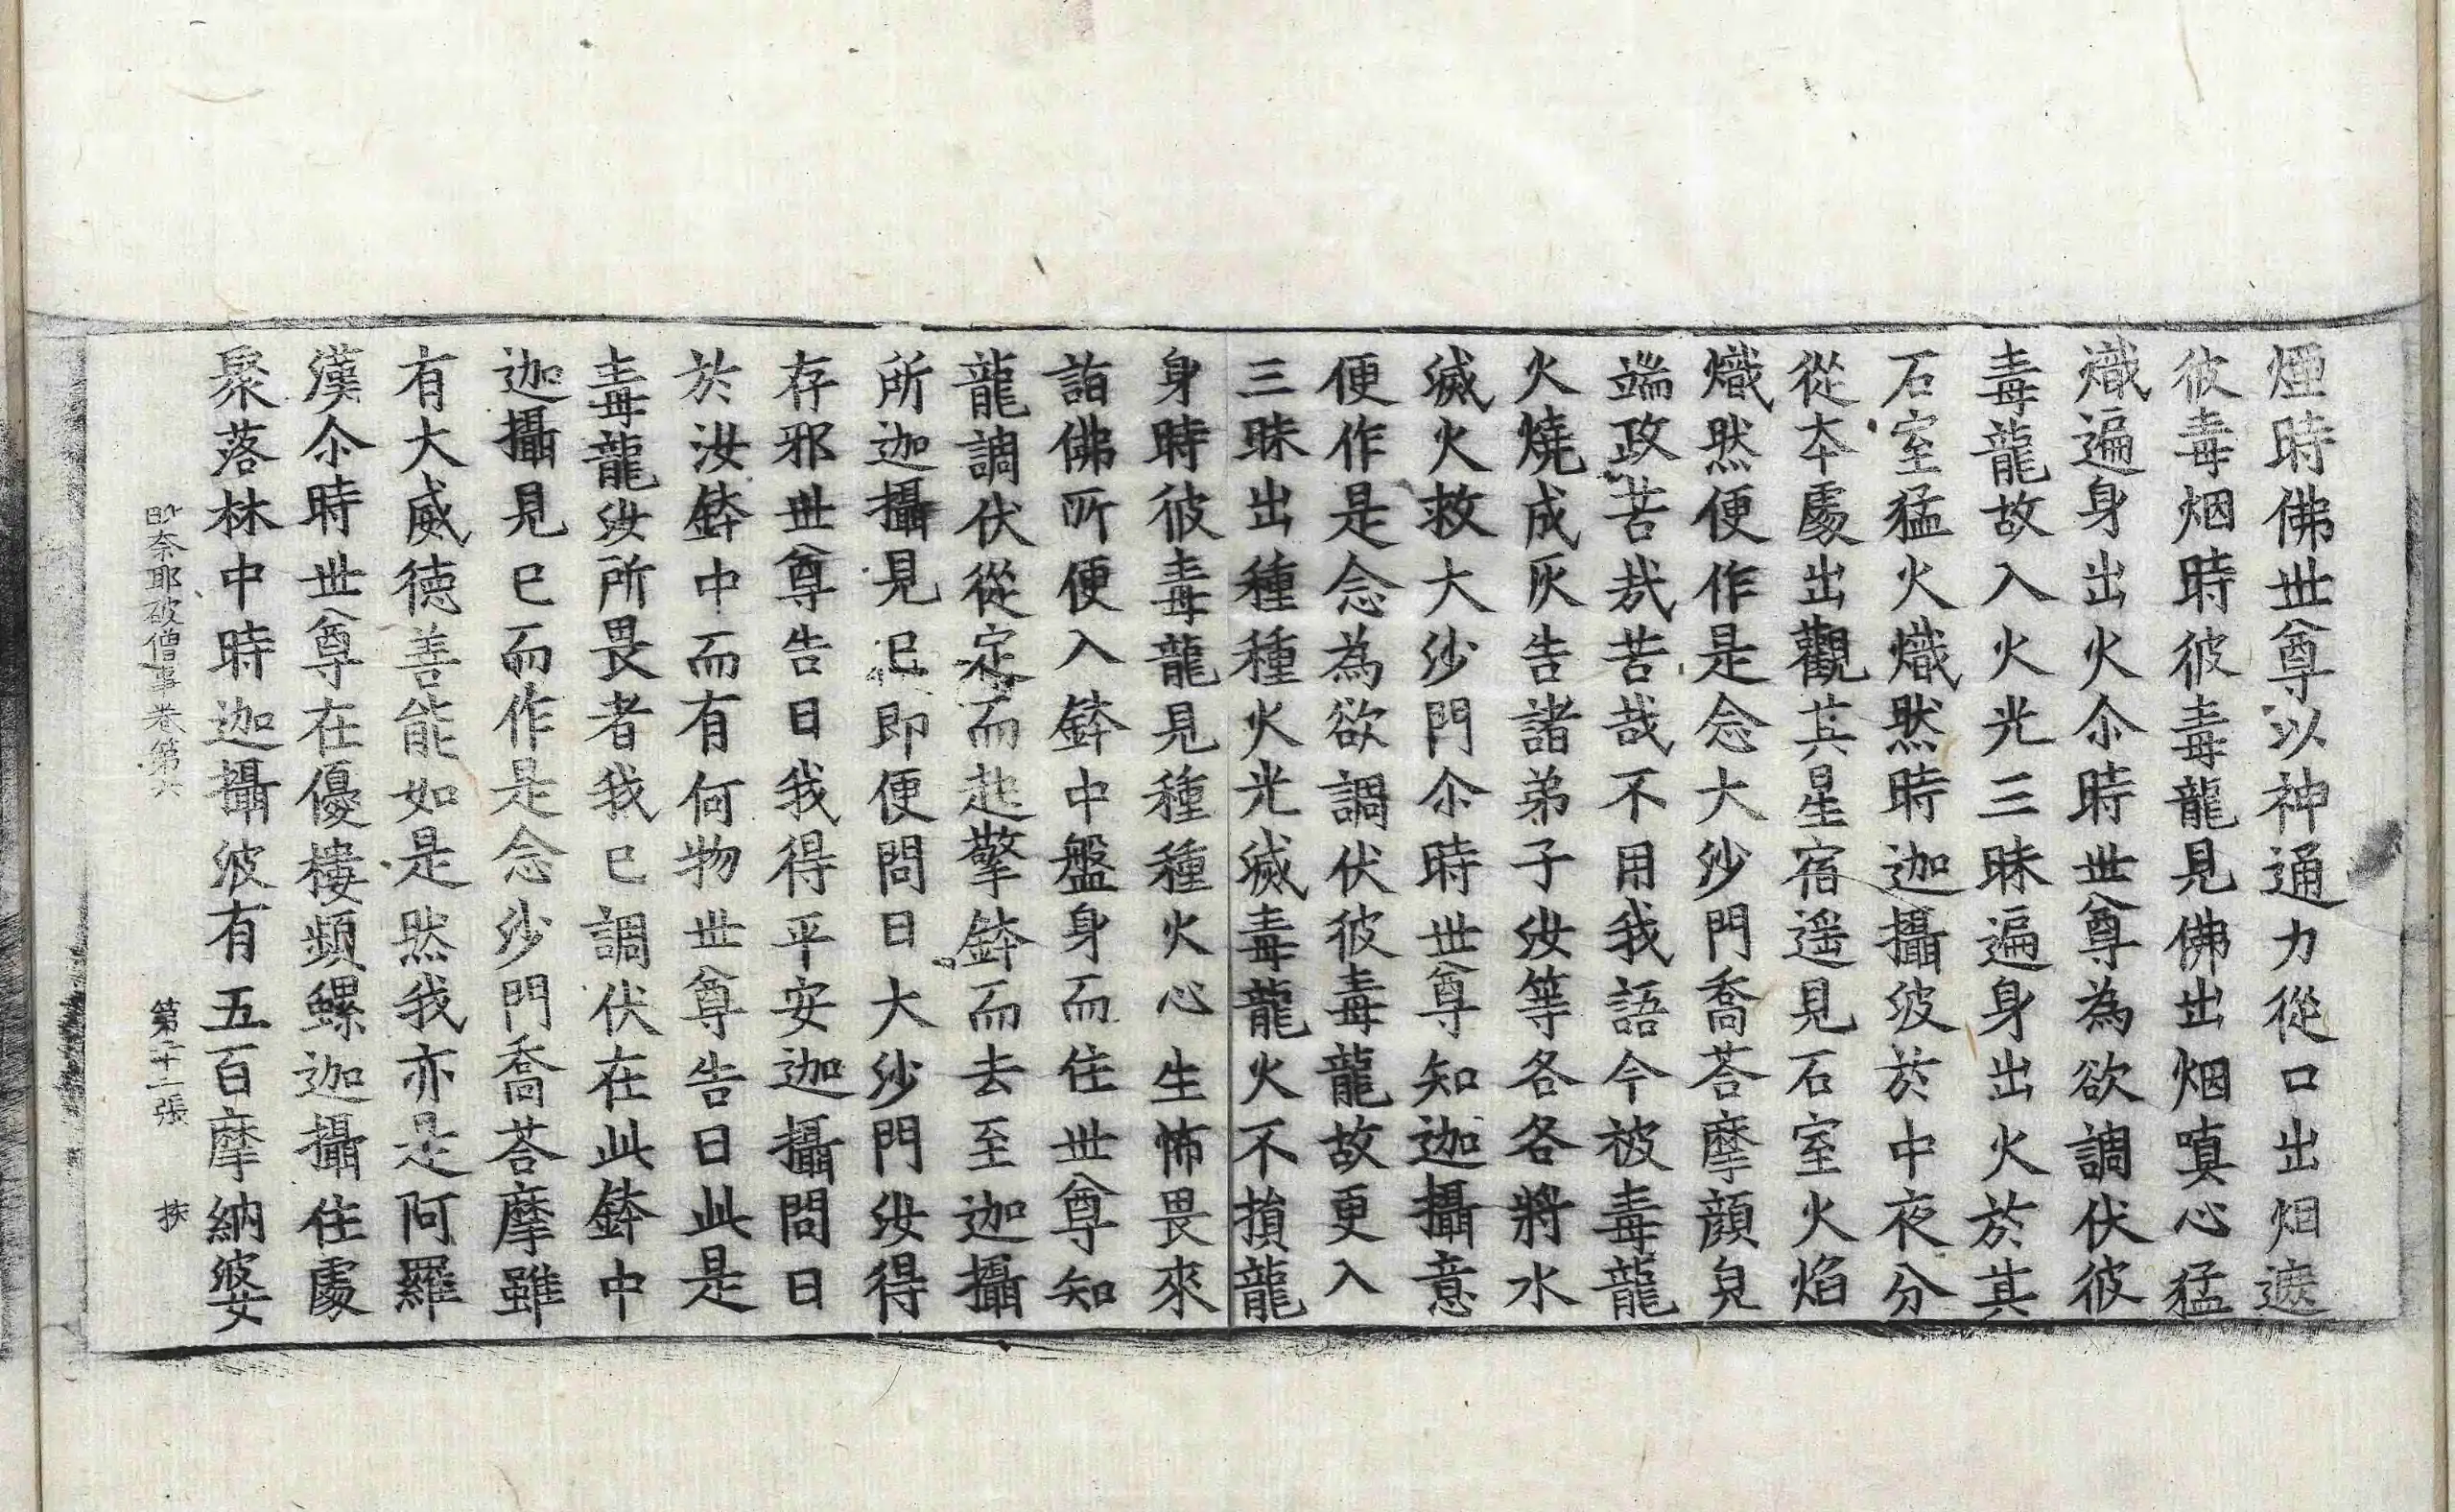 煙時佛世尊以神通力從口出烟遮
彼毒烟時彼毒龍見佛出烟嗔心猛
熾遍身出火尒時世尊為欲調伏彼
毒龍故入火光三昧遍身出火於其
石室猛火熾然時迦攝波於中夜分
從本處出觀其星宿遥見石室火焰
熾然便作是念大沙門喬荅摩顔皃
端政苦哉苦哉不用我語今被毒龍
火燒成灰告諸弟子汝等各各將水
滅火救大沙門尒時世尊知迦攝意
便作是念為欲調伏彼毒龍故更入
三昧出種種火光滅毒龍火不損龍
身時彼毒龍見種種火心生怖畏來
詣佛所便入鉢中盤身而住世尊知
龍調伏從定而起擎鉢而去至迦攝
所迦攝見已即便問曰大沙門汝得
存邪世尊告曰我得平安迦攝問曰
於汝鉢中而有何物世尊告曰此是
毒龍汝所畏者我已調伏在此鉢中
迦攝見已而作是念沙門喬荅摩雖
有大威德善能如是然我亦是阿羅
漢尒時世尊在優樓頻螺迦攝住處
聚落林中時迦攝波有五百摩納婆
毗奈耶破僧事卷第六 第二十二張 扶